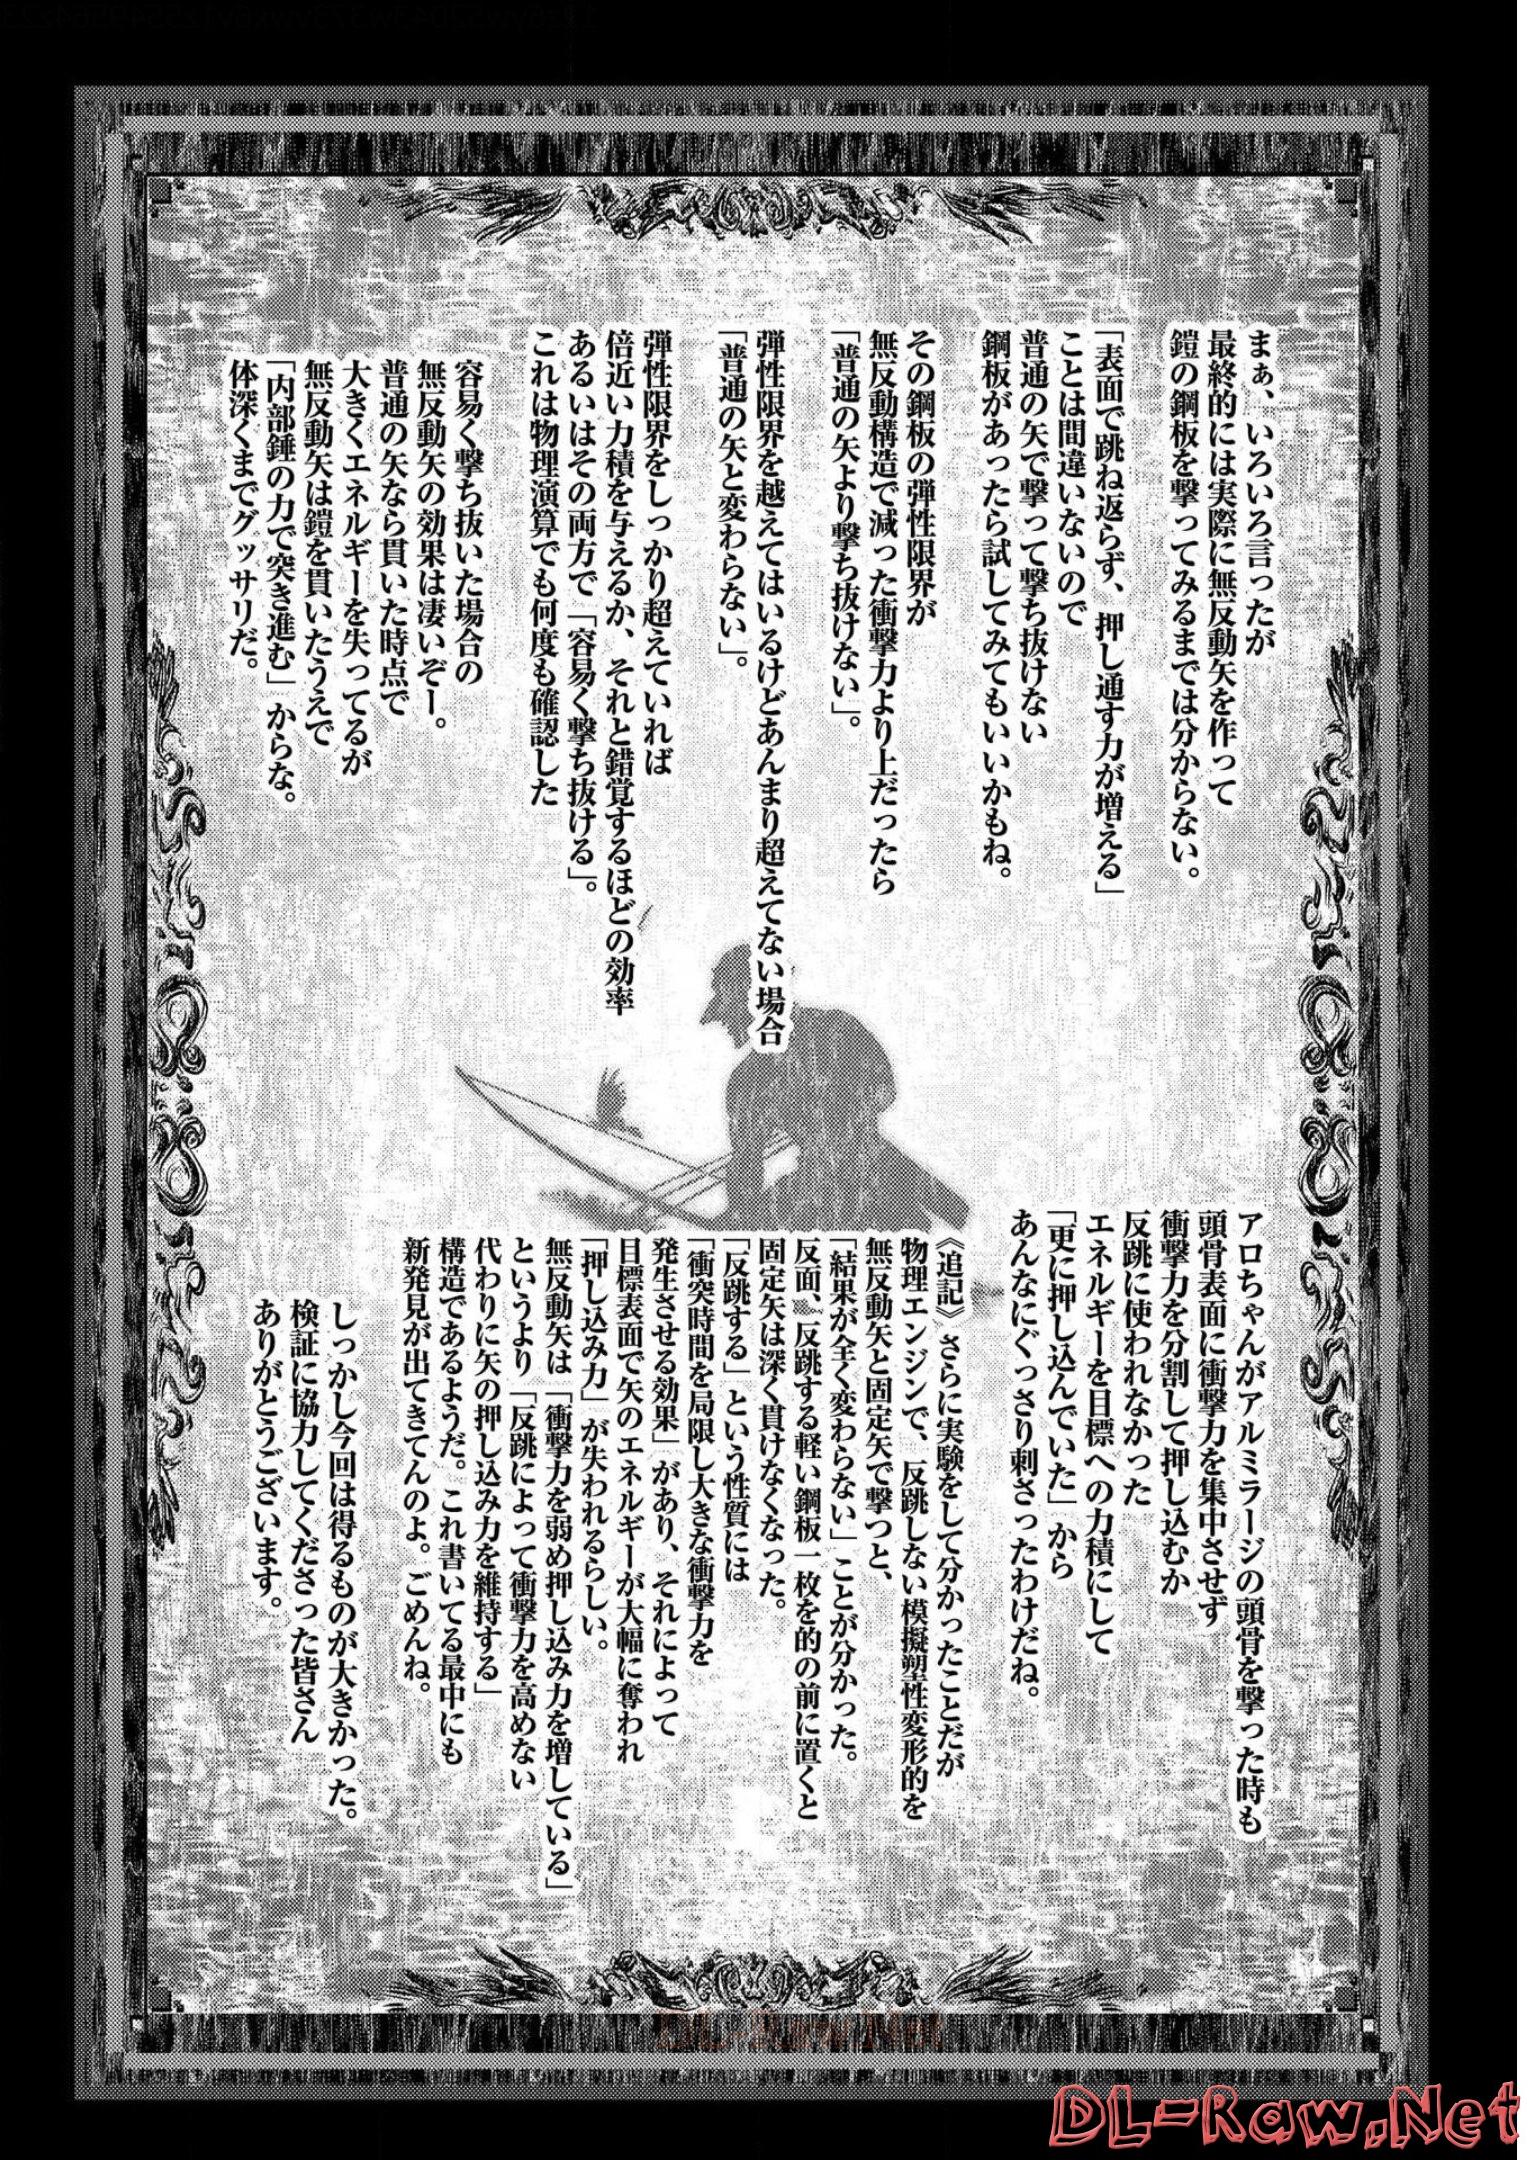 まぁ、いろいろ言ったが
最終的には実際に無反動矢を作って
鎧の鋼板を撃ってみるまでは分からない。
「表面で跳ね返らず、押し通す力が増える」
ことは間違いないので
普通の矢で撃って撃ち抜けない
鋼板があったら試してみてもいいかもね。
その鋼板の弾性限界が
無反動構造で減った衝撃力より上だったら
「普通の矢より撃ち抜けない」。
弾性限界を越えてはいるけどあんまり超えてない場合
「普通の矢と変わらない」。
弾性限界をしっかり超えていれば
倍近い力積を与えるか、それと錯覚するほどの効率
あるいはその両方で「容易く撃ち抜ける」。
これは物理演算でも何度も確認した
容易く撃ち抜いた場合の
無反動矢の効果は凄いぞー。
普通の矢なら貫いた時点で
大きくエネルギーを失ってるが
無反動矢は鎧を貫いたうえで
「内部錘の力で突き進む」からな。
体深くまでグッサリだ。
アロちゃんがアルミラージの頭骨を撃った時も
頭骨表面に衝撃力を集中させず
衝撃力を分割して押し込むか
反跳に使われなかった
エネルギーを目標への力積にして
「更に押し込んでいた」から
あんなにぐっさり刺さったわけだね。
《追記》さらに実験をして分かったことだが
物理エンジンで、反跳しない模擬塑性変形的を
無反動矢と固定矢で撃つと、
「結果が全く変わらない」ことが分かった。
反面、反跳する軽い鋼板一枚を的の前に置くと
固定矢は深く貫けなくなった。
「反跳する」という性質には
「衝突時間を局限し大きな衝撃力を
発生させる効果」があり、それによって
目標表面で矢のエネルギーが大幅に奪われ
「押し込み力」が失われるらしい。
無反動矢は「衝撃力を弱め押し込み力を増している」
というより「反跳によって衝撃力を高めない
代わりに矢の押し込み力を維持する」
構造であるようだ。これ書いてる最中にも
新発見が出てきてんのよ。ごめんね。
しっかし今回は得るものが大きかった。
検証に協力してくださった皆さん
ありがとうございます。
DL-Raw.Net
DL-Raw.Net